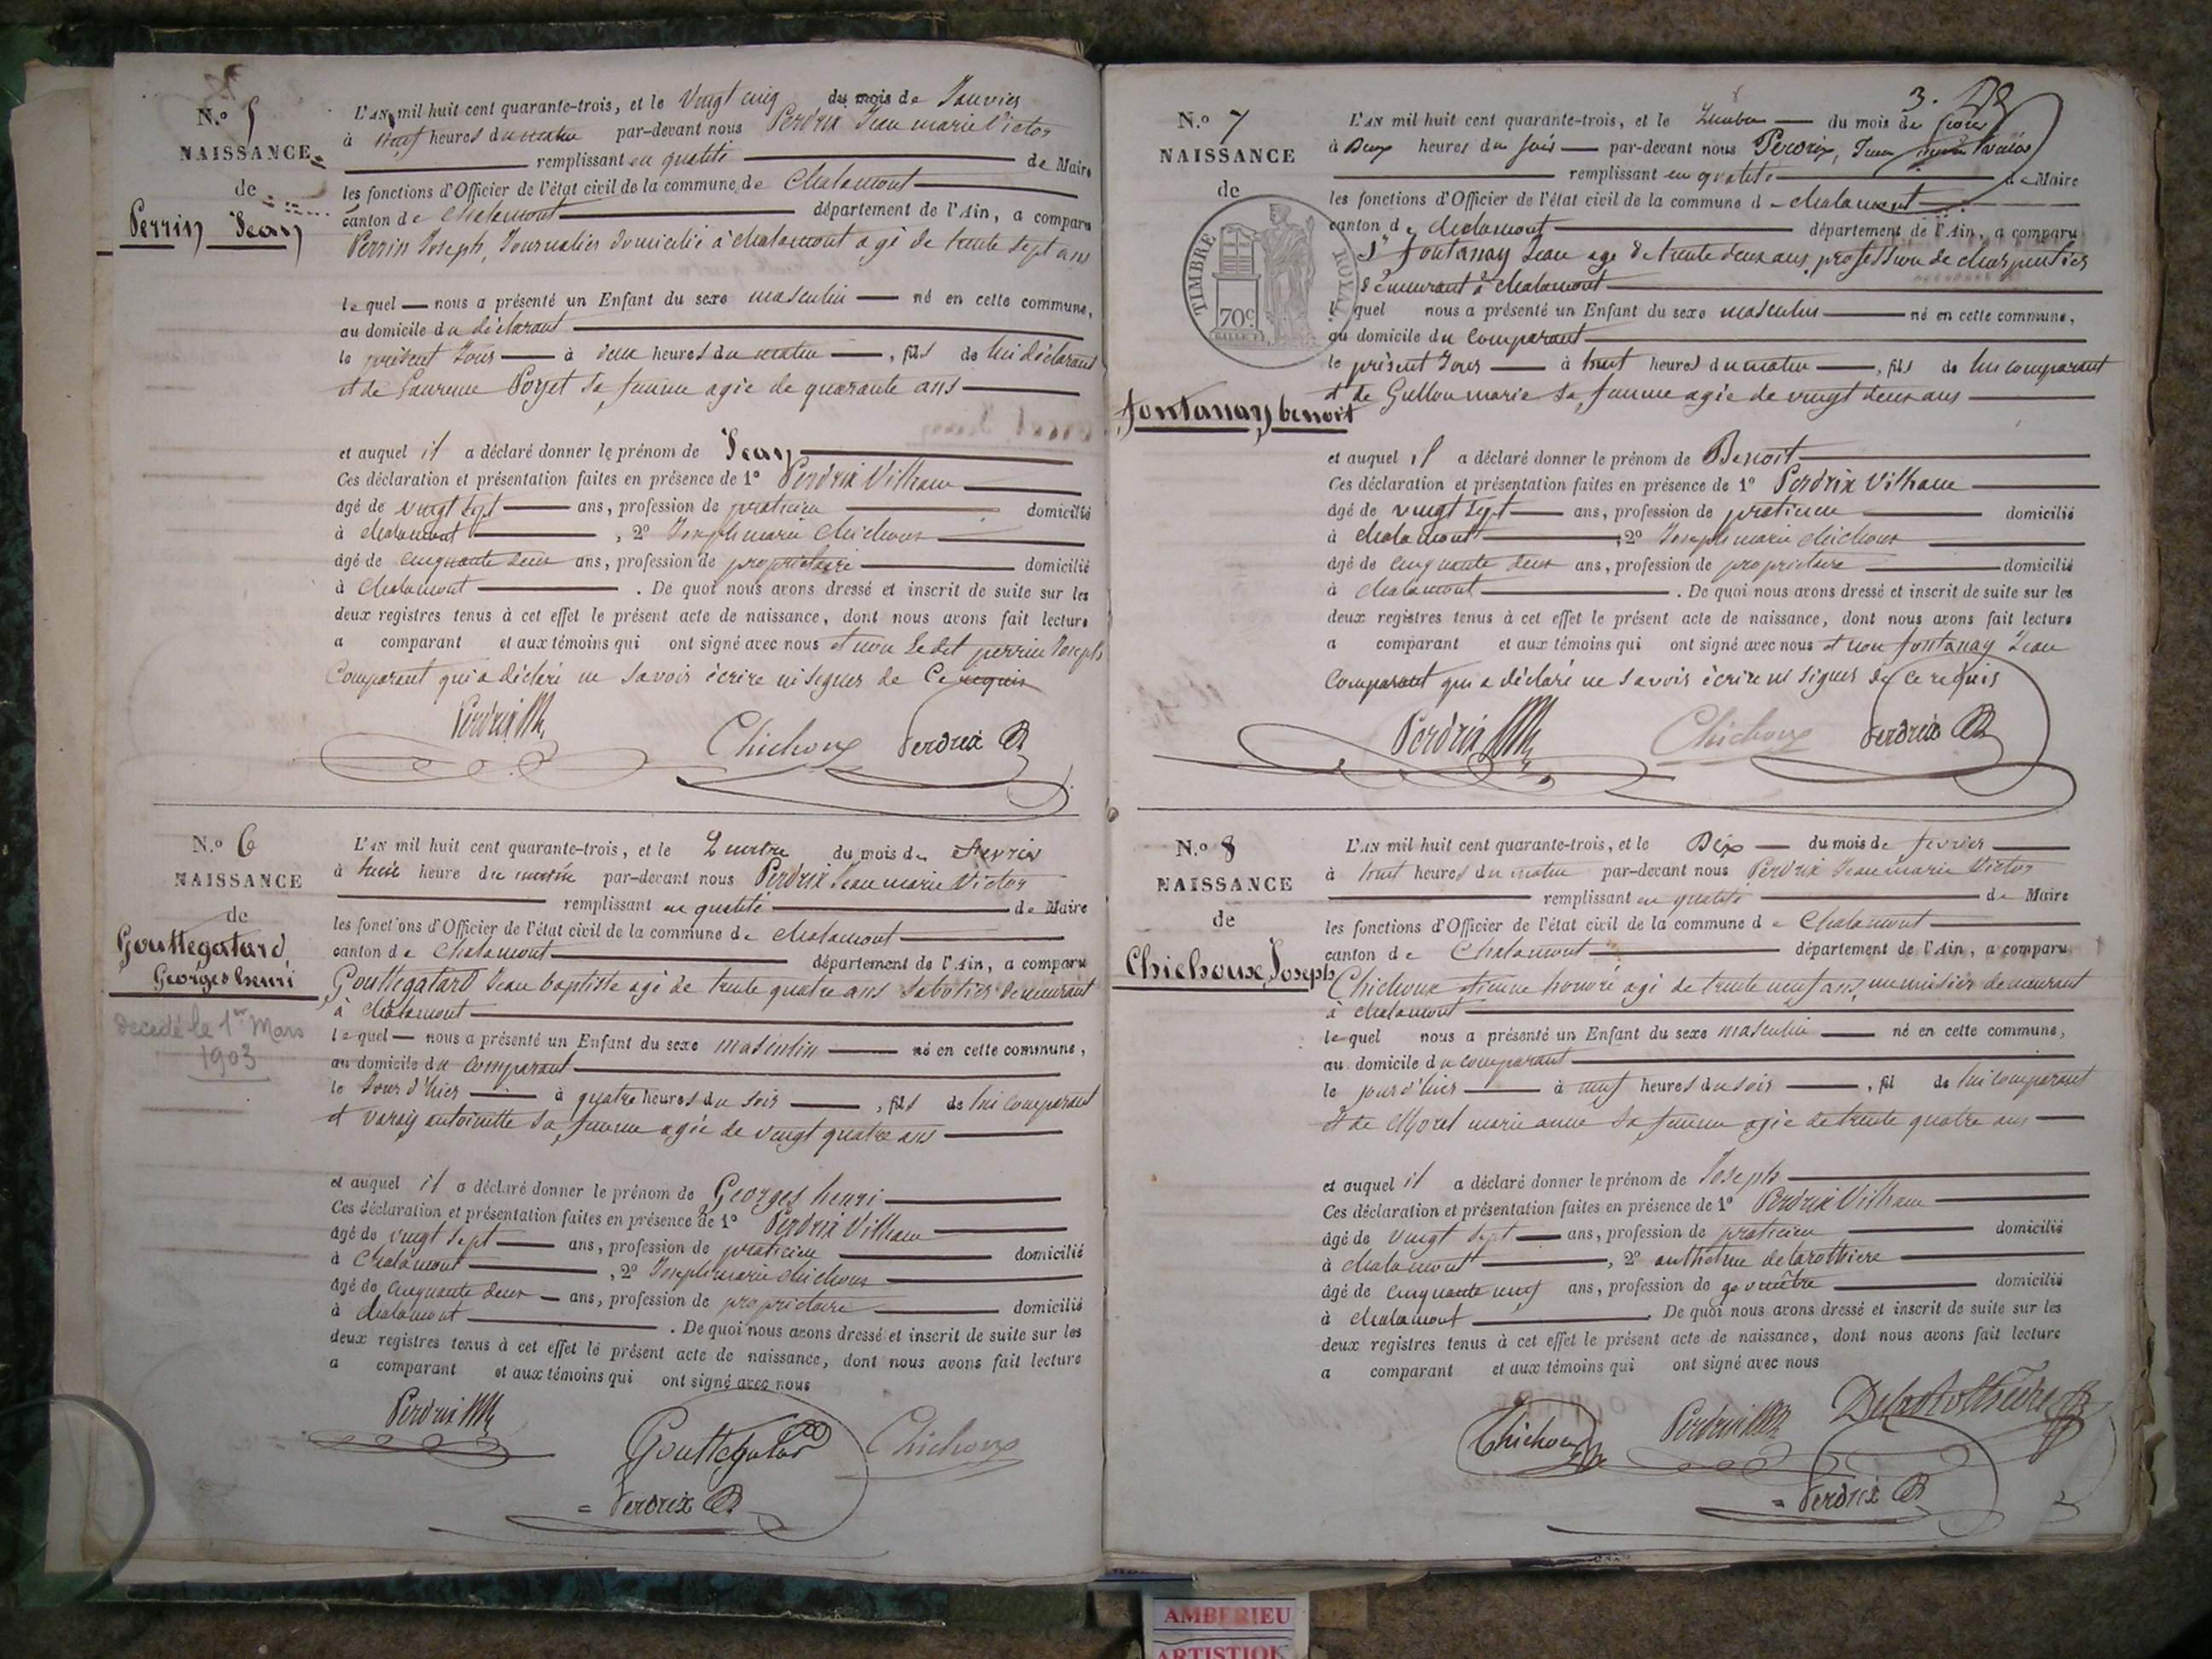 N.o 5
NAISSANCE
de
Perrin Jean
L'AN mil huit cent quarante-trois, et le Vingt cinq du mois de Janvier
à neuf heures du matin par-devant nous Perdrix Jean marie Victor
remplissant en qualité de Maire
les fonctions d'Officier de l'état civil de la commune de Chalamont
canton de Chalamont département de l'Ain, a comparu
Perrin Joseph, Journalier domicilié à chalamont agé de trente sept ans
lequel nous a présenté un Enfant du sexe masculin né en cette commune,
au domicile du déclarant
le présent Jour à deux heures du matin, fils de lui déclarant
et de Laurence Poyet sa femme agée de quarante ans
et auquel il a déclaré donner le prénom de Jean
Ces déclaration et présentation faites en présence de 1o Perdrix Vilhaume
âgé de vingt sept ans, profession de praticien domicilié
à chalamont, 2o Joseph marie Chichoux
âgé de cinquante deux ans, profession de propriétaire domicilié
à Chalamont. De quoi nous avons dressé et inscrit de suite sur les
deux registres tenus à cet effet le présent acte de naissance, dont nous avons fait lecture
a comparant et aux témoins qui ont signé avec nous et non le dit perrin Joseph
Comparant qui a déclaré ne savoir écrire ni signer de Ce requis
Perdrix Chichoux Perdrix
N.o 6
NAISSANCE
de
Gouttegatard,
Georges henri
decedé le 1er Mars
1903
L'AN mil huit cent quarante-trois, et le Quatre du mois de fevrier
à heure du matin par-devant nous Perdrix Jean marie Victor
remplissant en qualité de Maire
les fonctions d'Officier de l'état civil de la commune de chalamont
canton de Chalamont département de l'Ain, a comparu
Gouttegatard Jean baptiste agé de trente quatre ans sabotier demeurant
à chalamont
lequel nous a présenté un Enfant du sexe masculin né en cette commune,
au domicile du comparant
le Jour d'hier à quatre heures du soir, fils de lui comparant
et varay antoinette sa femme agée de vingt quatre ans
et auquel il a déclaré donner le prénom de Georges henri
Ces déclaration et présentation faites en présence de 1o Perdrix Vilhaume
âgé de vingt sept ans, profession de praticien domicilié
à Chalamont, 2o Joseph marie chichoux
âgé de cinquante deux ans, profession de propriétaire domicilié
à chalamont. De quoi nous avons dressé et inscrit de suite sur les
deux registres tenus à cet effet le présent acte de naissance, dont nous avons fait lecture
a comparant et aux témoins qui ont signé avec nous
Perdrix Gouttegatard Chichoux
Perdrix
3.
N.o 7
NAISSANCE
de
TIMBRE ROYAL
70c
fontanay benoit
L'AN mil huit cent quarante-trois, et le du mois de
à Deux heures du soir par-devant nous Perdrix, Jean marie Victor
remplissant en qualité de Maire
les fonctions d'Officier de l'état civil de la commune de chalamont
canton de chalamont département de l'Ain, a comparu
Sr fontanay Jean agé de trente deux ans, profession de charpentier
demeurant à chalamont
lequel nous a présenté un Enfant du sexe masculin né en cette commune,
au domicile du comparant
le présent Jour à huit heures du matin, fils de lui comparant
et de Gullon marie sa femme agée de vingt deux ans
et auquel il a déclaré donner le prénom de Benoit
Ces déclaration et présentation faites en présence de 1o Perdrix Vilhaume
âgé de vingt sept ans, profession de praticien domicilié
à chalamont, 2o Joseph marie chichoux
âgé de cinquante deux ans, profession de propriétaire domicilié
à chalamont. De quoi nous avons dressé et inscrit de suite sur les
deux registres tenus à cet effet le présent acte de naissance, dont nous avons fait lecture
a comparant et aux témoins qui ont signé avec nous et non fontanay Jean
comparant qui a déclaré ne savoir écrire ni signer de ce requis
Perdrix Chichoux Perdrix
N.o 8
NAISSANCE
de
Chichoux, Joseph
L'AN mil huit cent quarante-trois, et le Dix du mois de fevrier
à huit heures du matin par-devant nous Perdrix Jean marie Victor
remplissant en qualité de Maire
les fonctions d'Officier de l'état civil de la commune de Chalamont
canton de Chalamont département de l'Ain, a comparu
Chichoux etienne honoré agé de trente neuf ans, menuisier demeurant
à chalamont
lequel nous a présenté un Enfant du sexe masculin né en cette commune,
au domicile du comparant
le jour d'hier à neuf heures du soir, fil de lui comparant
et de Morel marie anne sa femme agée de trente quatre ans
et auquel il a déclaré donner le prénom de Joseph
Ces déclaration et présentation faites en présence de 1o Perdrix Vilhaume
âgé de vingt sept ans, profession de praticien domicilié
à chalamont, 2o anthelme delarothiere
âgé de cinquante neuf ans, profession de géomètre domicilié
à chalamont. De quoi nous avons dressé et inscrit de suite sur les
deux registres tenus à cet effet le présent acte de naissance, dont nous avons fait lecture
a comparant et aux témoins qui ont signé avec nous
Chichoux Perdrix Delarothiere
Perdrix
AMBERIEU
ARTISTIQ